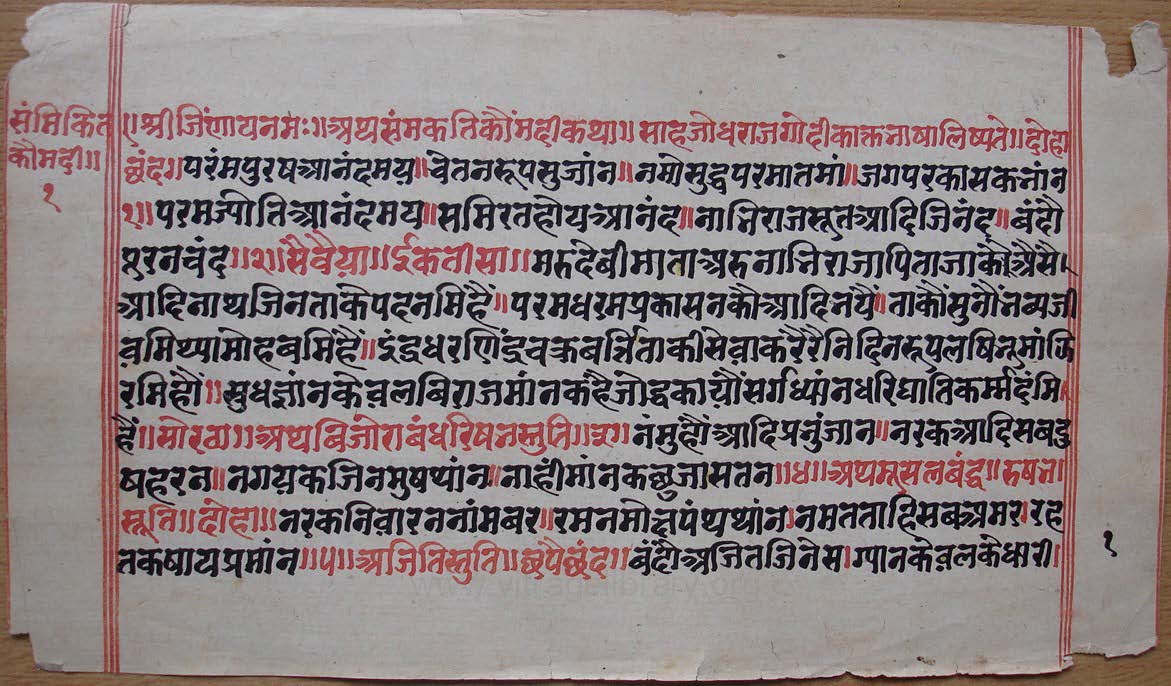 संमिकित
कौमदी॥
१
॥श्रीजिंणायनमः॥अथसंमकतिकौंमदीकथा॥साहजोधराजगोदीकाकृतनाषालिष्यते॥दोहा
छंद॥परंमपुरषआनंदमय॥चेतनरूपसुजांन॥नमोसुद्धपरमातमां॥जगपरकासकनांन
१॥परमज्योतिआनंदमय॥समिरतहोयआनंद॥नानिराजसूतआदिजिनंद॥बंदौ
पूरनचंद॥२॥सैवैया॥ईकतीसा॥मरुदेबीमाताअरुनानिराजापिताजाकौऔसै
आदिनाथजिनताकेपदनमिहैं॥परमधरमप्रकासनकौआदिनयैं॥ताकौंसुनौंनव्यजी
वमिथ्यामोहबमिंहैं॥इंद्रधरणिंद्रचक्रबर्त्तिताकीसेवाकरै
रमिहौं॥सुधज्ञांनकेवलबिराजमांनकहैजोद्धकायौंसर्गध्यांनधरिघातिकर्म्मदंमि
हैं॥सोरठा॥अथबिजोराबंधरिषनस्तुति॥३॥नंमुहौंआदिप्रनुंजांन॥नरकआदिसबदु
षहरन॥नगयकजिनमुषथांन॥नाहींमांनकछुजासतन॥४॥अथमूसलबंद्ध॥रुषन
स्तूति॥दोहा॥नरकनिवारननांमबर॥रमनमोक्षपंथथांन॥नमतताहिसबअमर।रह
तकषायप्रमांन॥५॥अजितिस्तुति॥छपैछंद॥बंदौअजितजिनेस।ग्यानकेवलकेधारी।
१